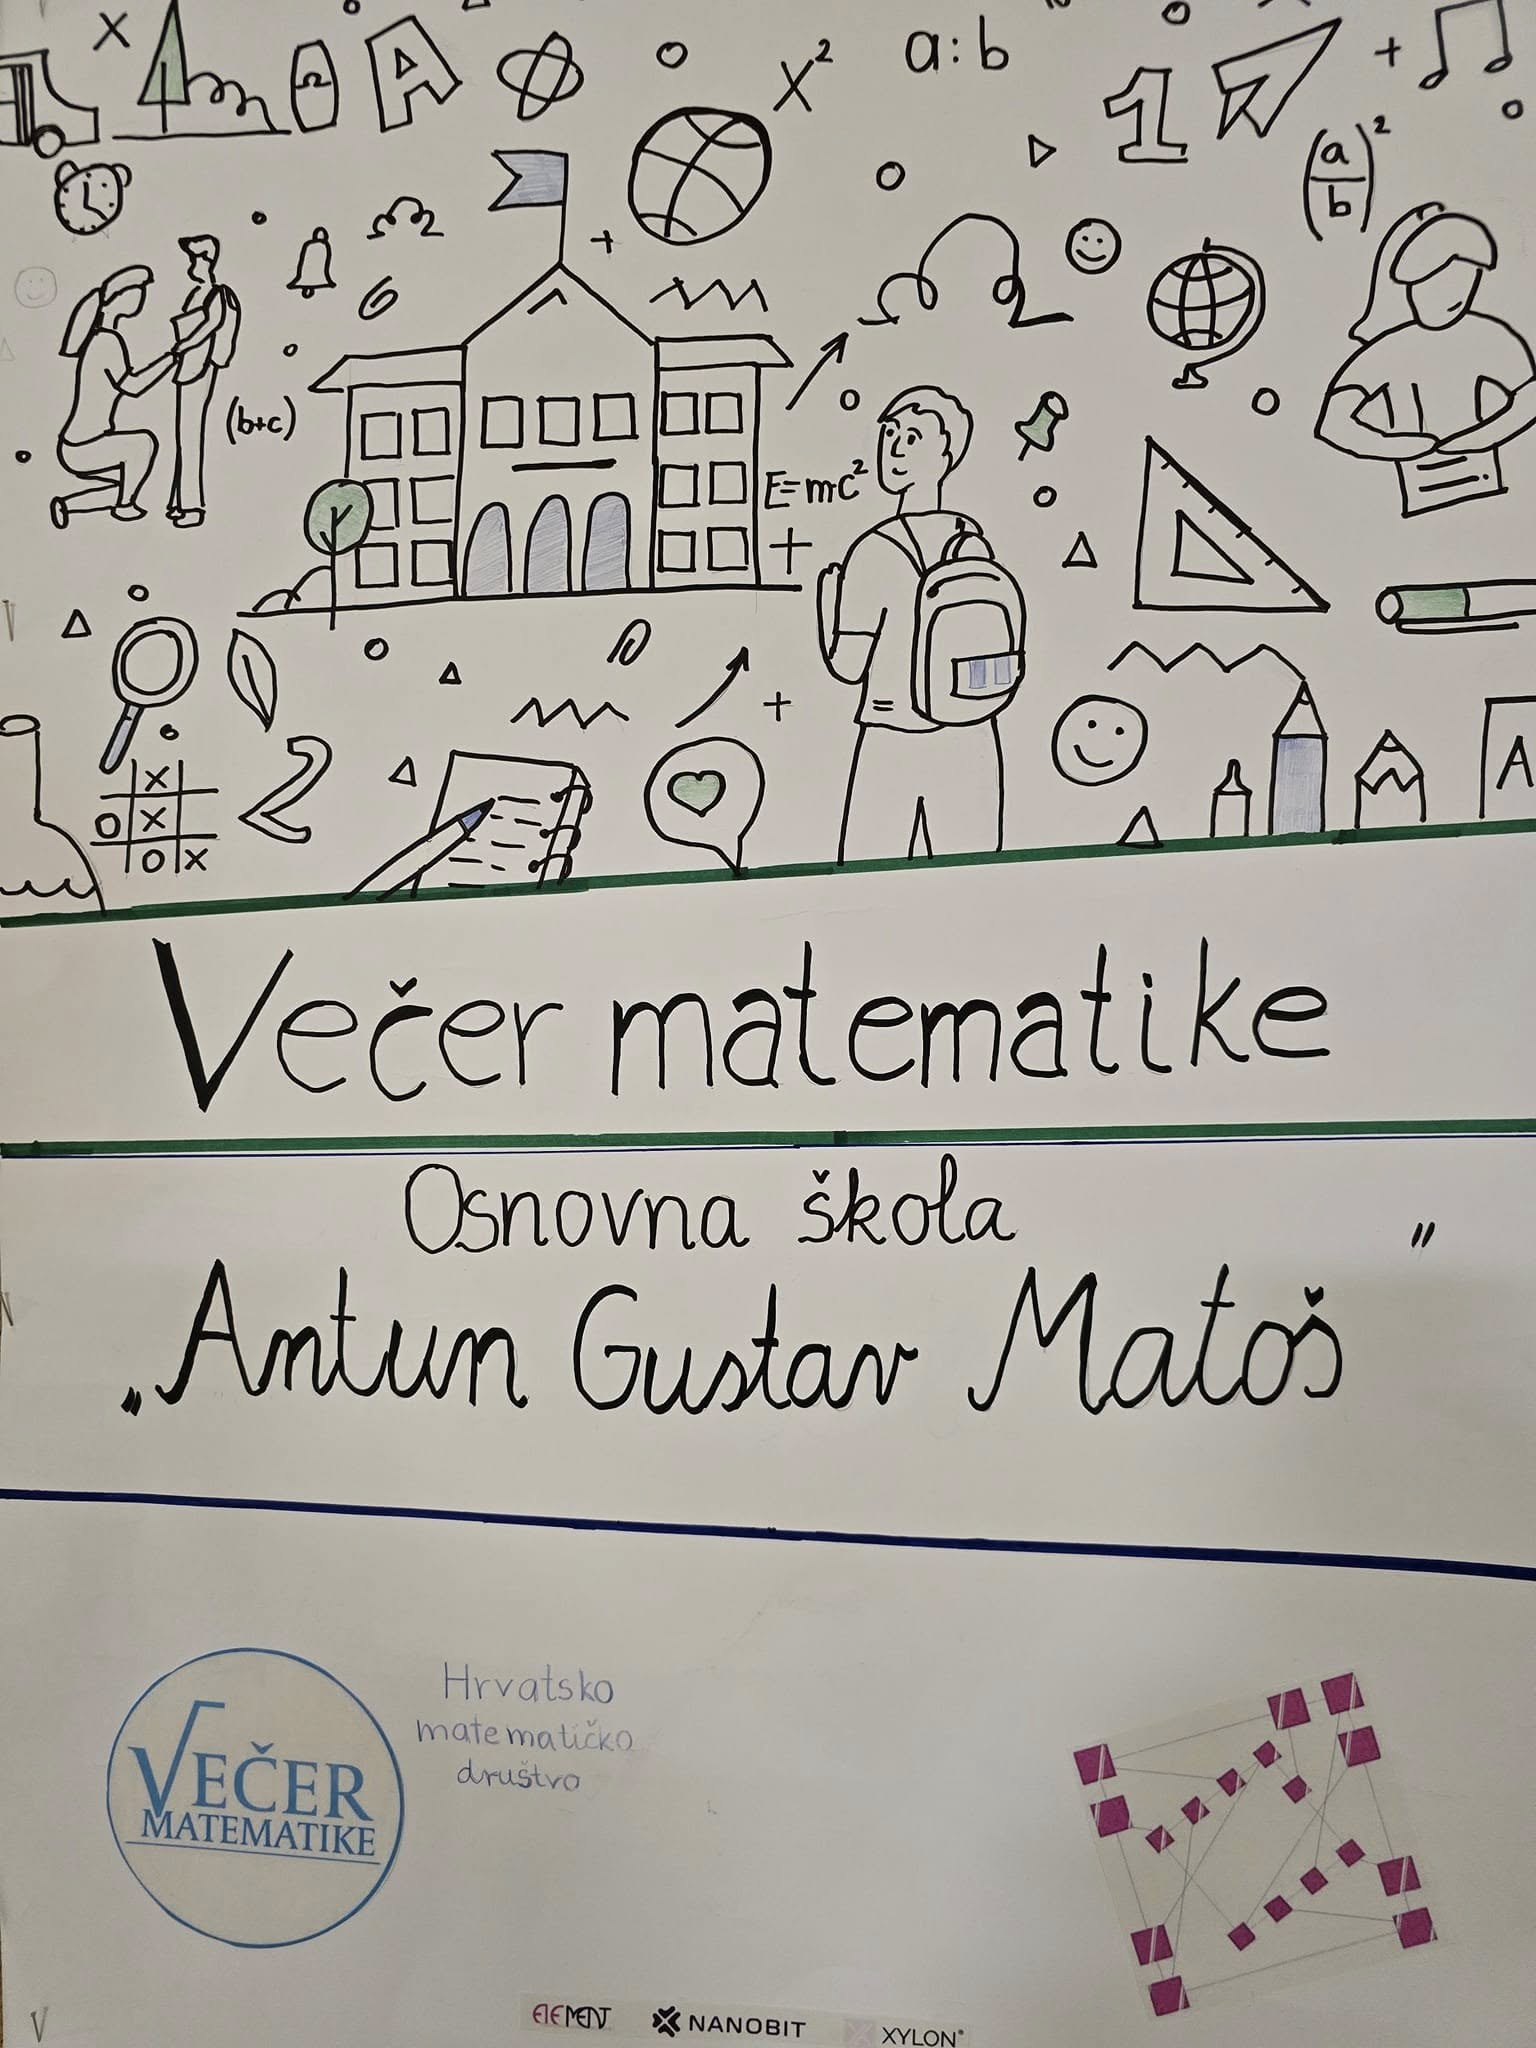 x
A
x²
a:b
1
+
(a/b)²
+
(b+c)
E=mc²
+
+
x
o x
o x
2
A
Večer matematike
Osnovna škola
„Antun Gustav Matoš"
VEČER
MATEMATIKE
Hrvatsko
matematičko
društvo
ELEMENT NANOBIT XYLON®